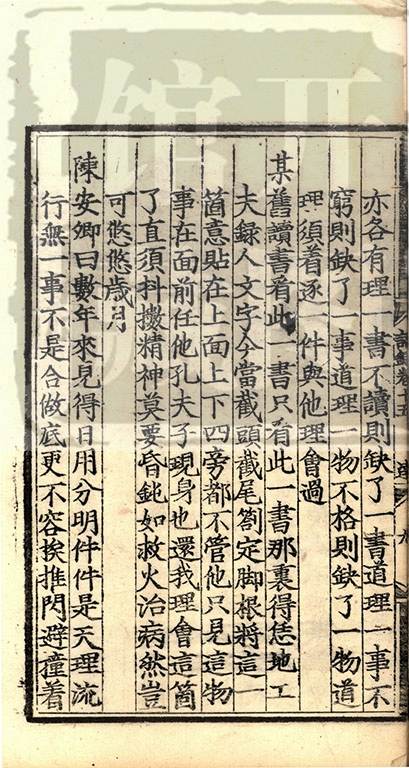 亦各有理一書不讀則缺了一書道理一事不
窮則缺了一事道理一物不格則缺了一物道
理須着逐一件與他理會過
某舊讀書看此一書只看此一書那裏得恁地工
夫録人文字今當截頭截尾劄定脚根將這一
箇意貼在上面上下四旁都不管他只見這物
事在面前任他孔夫子現身也還我理會這箇
了直須抖擻精神莫要昏鈍如救火治病然豈
可悠悠歲月
陳安卿曰數年來見得日用分明件件是天理流
行無一事不是合做底更不容挨推閃避撞着